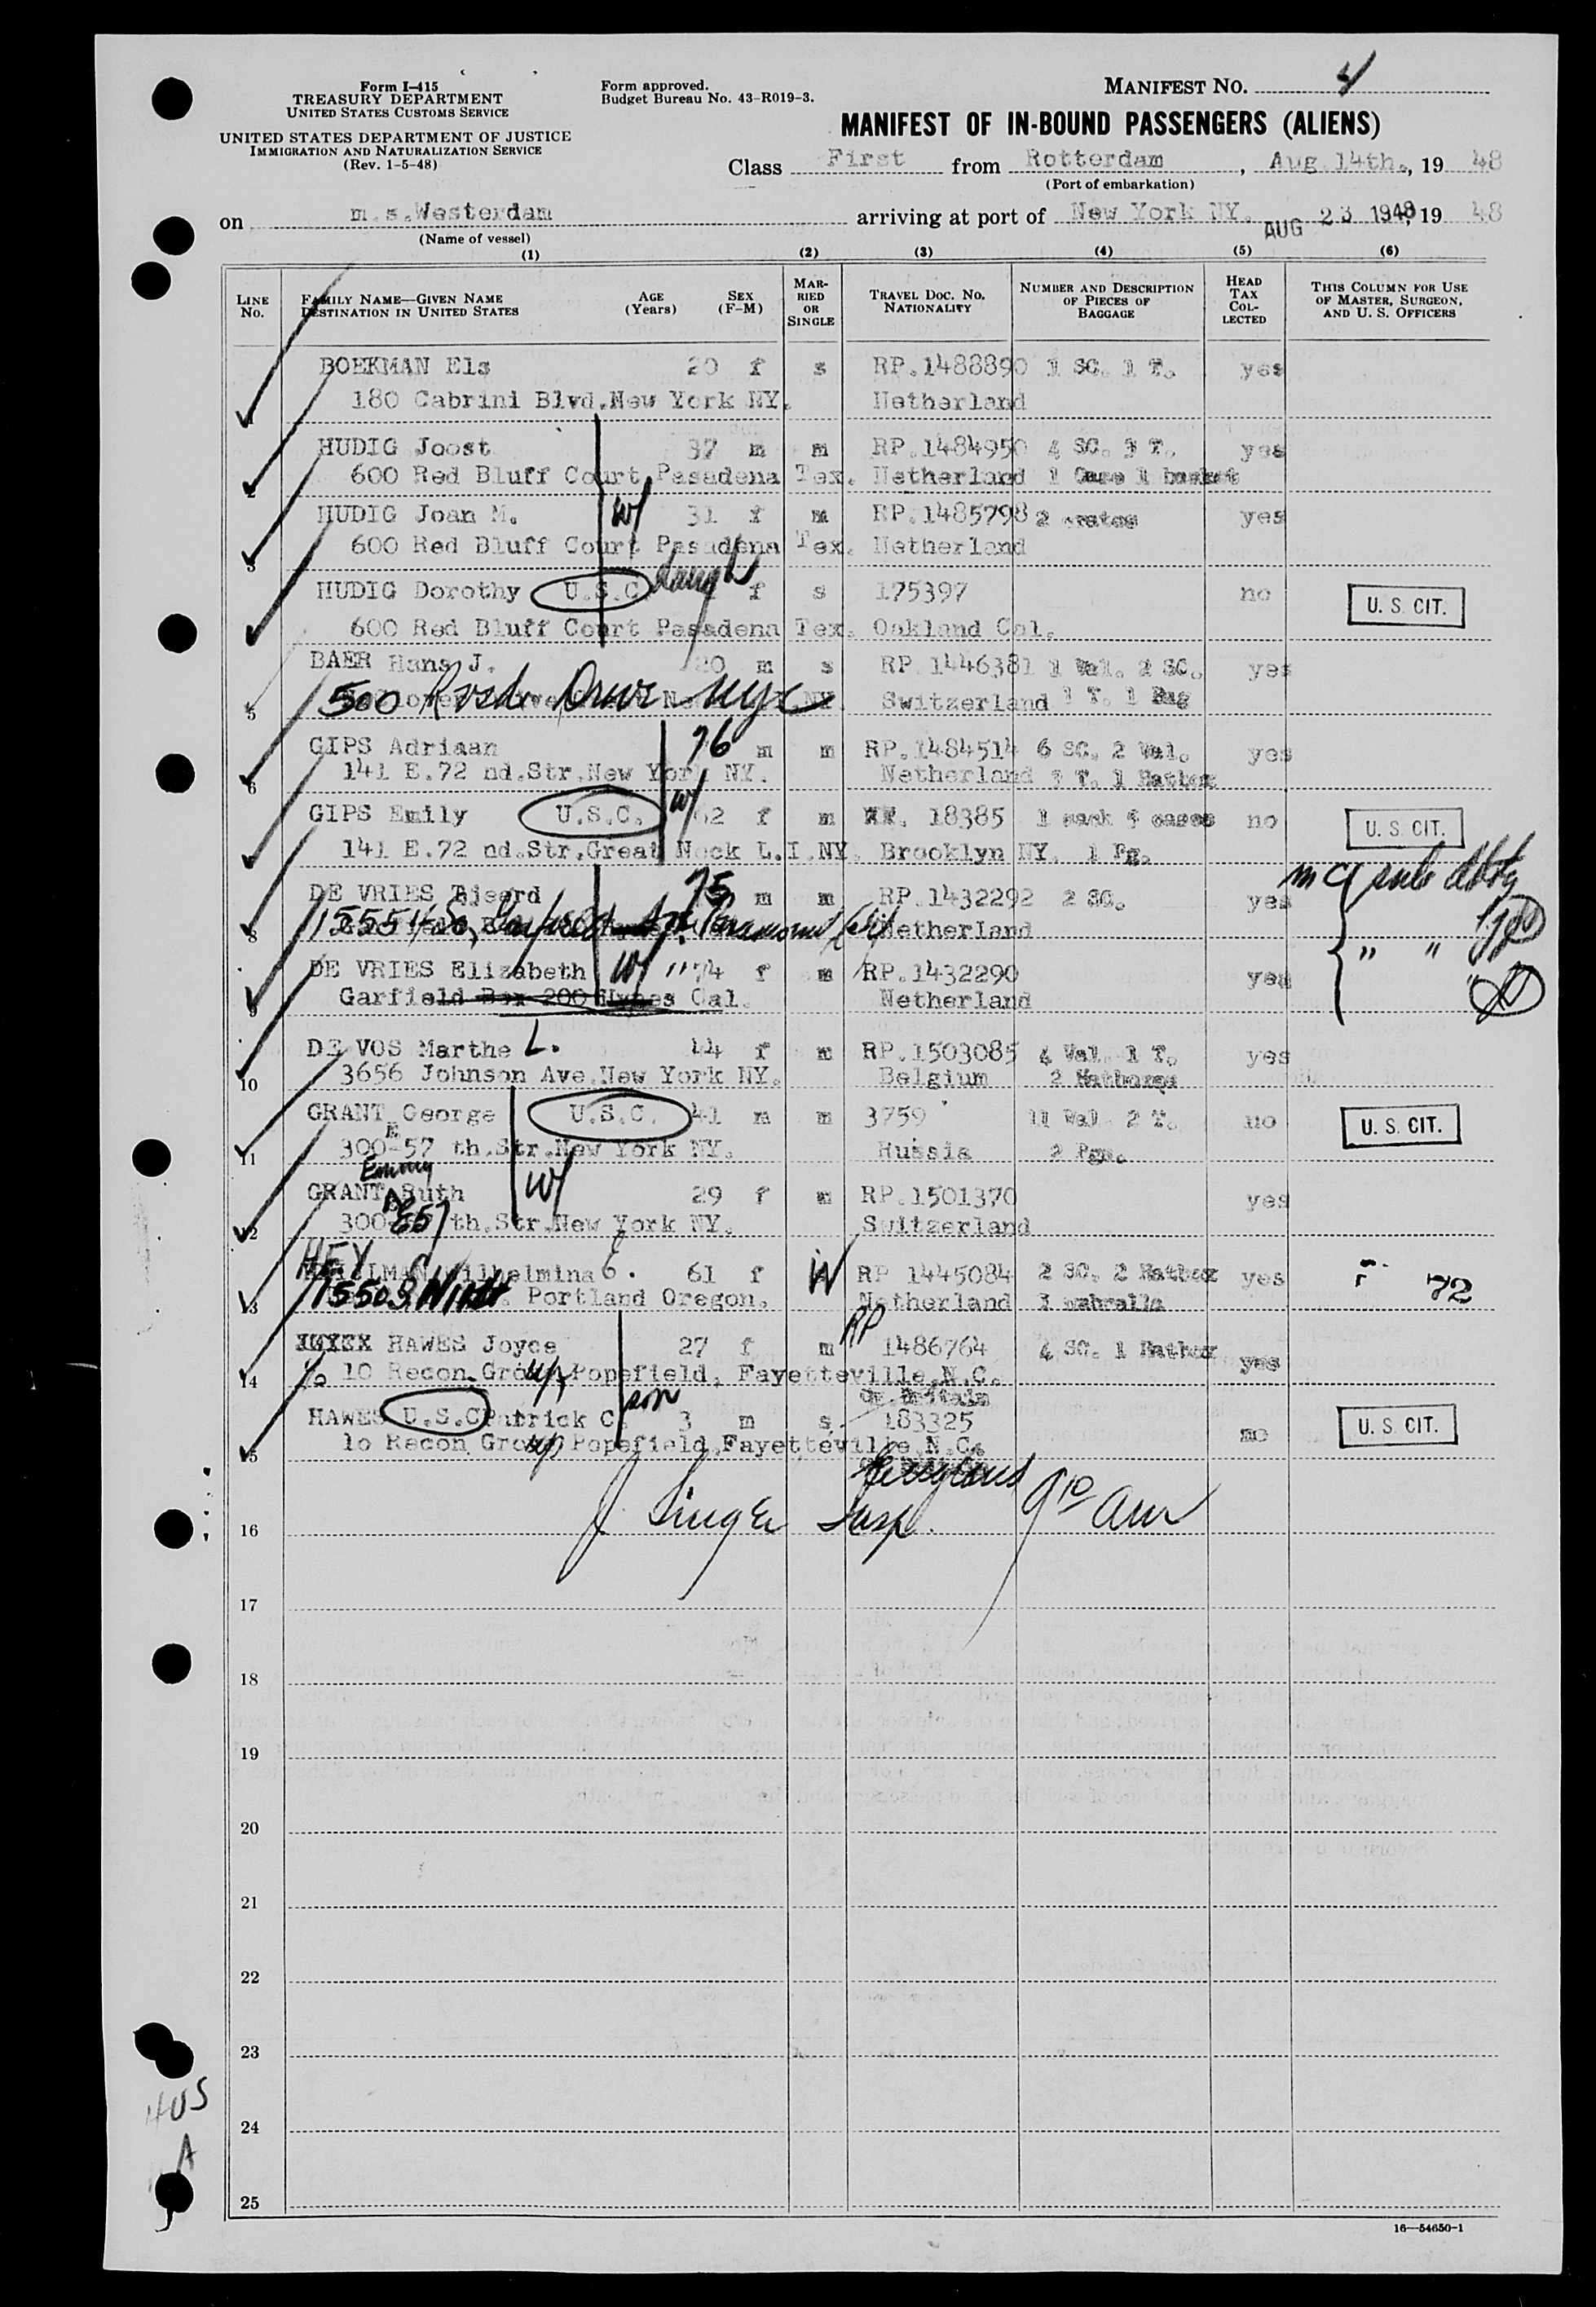 Form I-415
TREASURY DEPARTMENT
UNITED STATES CUSTOMS SERVICE
UNITED STATES DEPARTMENT OF JUSTICE
IMMIGRATION AND NATURALIZATION SERVICE
(Rev. 1-5-48)
Form approved.
Budget Bureau No. 43-R019-3.
MANIFEST NO. 4
MANIFEST OF IN-BOUND PASSENGERS (ALIENS)
Class First from Rotterdam, Aug.14th., 19 48
(Port of embarkation)
on m.s.Westerdam arriving at port of New York NY. AUG 23 1948, 19 48
(Name of vessel)
(1) (2) (3) (4) (5) (6)
LINE No. FAMILY NAME—GIVEN NAME DESTINATION IN UNITED STATES AGE (Years) SEX (F-M) MARRIED OR SINGLE TRAVEL DOC. NO. NATIONALITY NUMBER AND DESCRIPTION OF PIECES OF BAGGAGE HEAD TAX COLLECTED THIS COLUMN FOR USE OF MASTER, SURGEON, AND U. S. OFFICERS
BOEKMAN Els 20 f s RP.1488890 1 SC. 1 T. yes
180 Cabrini Blvd.New York NY. Netherland
HUDIG Joost 37 m m RP.1484950 4 SC. 3 T. yes
2 600 Red Bluff Court Pasadena Tex. Netherland 1 Case 1 basket
HUDIG Joan M. W/ 31 f m RP.1485798 2 yes
3 600 Red Bluff Court Pasadena Tex. Netherland
HUDIG Dorothy U.S.C. daugh f s 175397 no U. S. CIT.
600 Red Bluff Court Pasadena Tex. Oakland Cal.
BAER Hans J. 20 m s RP 1446381 1 Val. 2 SC. yes
5 500 Rvsd. Drive NYC Switzerland 1 T. 1 Bag
GIPS Adriaan 76 m m RP.1484514 6 SC. 2 Val. yes
6 141 E.72 nd.Str.New York NY. Netherland T. 1 Hatbox
GIPS Emily U.S.C. W/ 62 f m 18385 1 sack cases no U. S. CIT.
141 E.72 nd.Str.Great Neck L.I.NY. Brooklyn NY. 1 Pg.
DE VRIES Tjeerd 75 m m RP.1432292 2 SC. yes
8 Paramount Calif Netherland
DE VRIES Elizabeth W/ 74 f m RP.1432290 yes " "
9 Garfield Box 200 Hynes Cal. Netherland
DE VOS Marthe L. 44 f m RP.1503085 4 Val. 1 T. yes
10 3656 Johnson Ave.New York NY. Belgium 2 Hatboxes
GRANT George U.S.C. 41 m m 3759 11 Val 2 T. no U. S. CIT.
11 300 E 57 th.Str.New York NY. Russia 2 Pgs.
Emmy
GRANT Ruth W/ 29 f m RP.1501370 yes
12 300 E57 th.Str.New York NY. Switzerland
Wilhelmina 61 f W RP 1445084 2 SC. 2 Hatbox yes 72
13 Portland Oregon. Netherland 1 umbrella
14 HAWES Joyce 27 f m RP 1486764 4 SC. 1 Hatbox yes
c/o 10 Recon.Group Popefield, Fayetteville,N.C.
Gr.Britain
HAWES U.S.C. Patrick C. son 3 m s. 183325 no U. S. CIT.
15 10 Recon Group Popefield,Fayetteville,N.C.
England
16 J Singer Insp.
17
18
19
20
21
22
23
24
25
16—54650-1